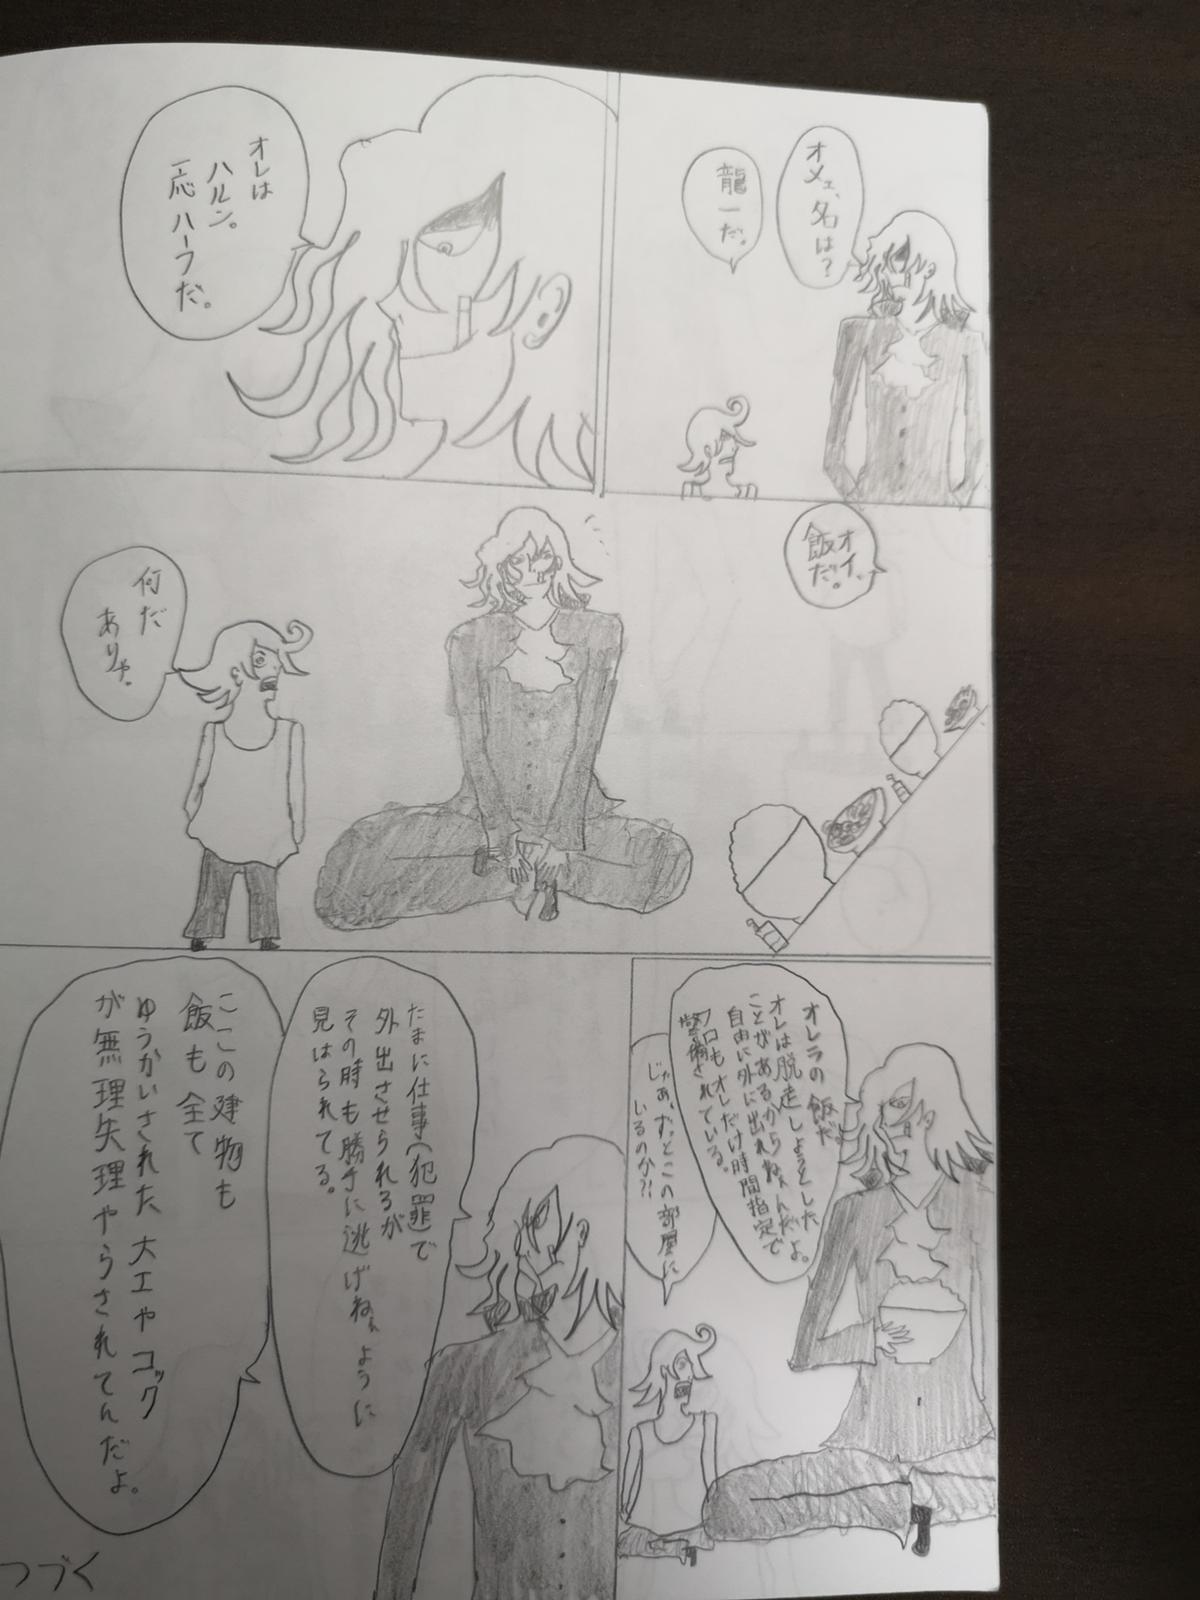 オメェ、名は?
龍一だ。
オレは
ハルン。
一応ハーフだ。
オイ、
飯だ。
何だ
ありゃ。
オレラの飯だ。
オレは脱走しようとした
ことがあるからねぇんだよ。
自由に外に出れねぇんだよ。
フロもオレだけ時間指定で
警備されている。
じゃあ、ずっとこの部屋に
いるのか?!
たまに仕事(犯罪)で
外出させられるが
その時も勝手に逃げねぇように
見はられてる。
ここの建物も
飯も全て
ゆうかいされた大工やコック
が無理矢理やらされてんだよ。
つづく